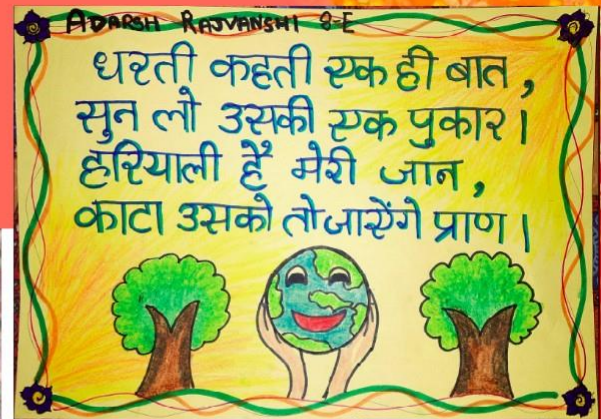 ADARSH RAJVANSHI 8-E
धरती कहती एक ही बात,
सुन लो उसकी एक पुकार।
हरियाली है मेरी जान,
काटा उसको तो जाएंगे प्राण।